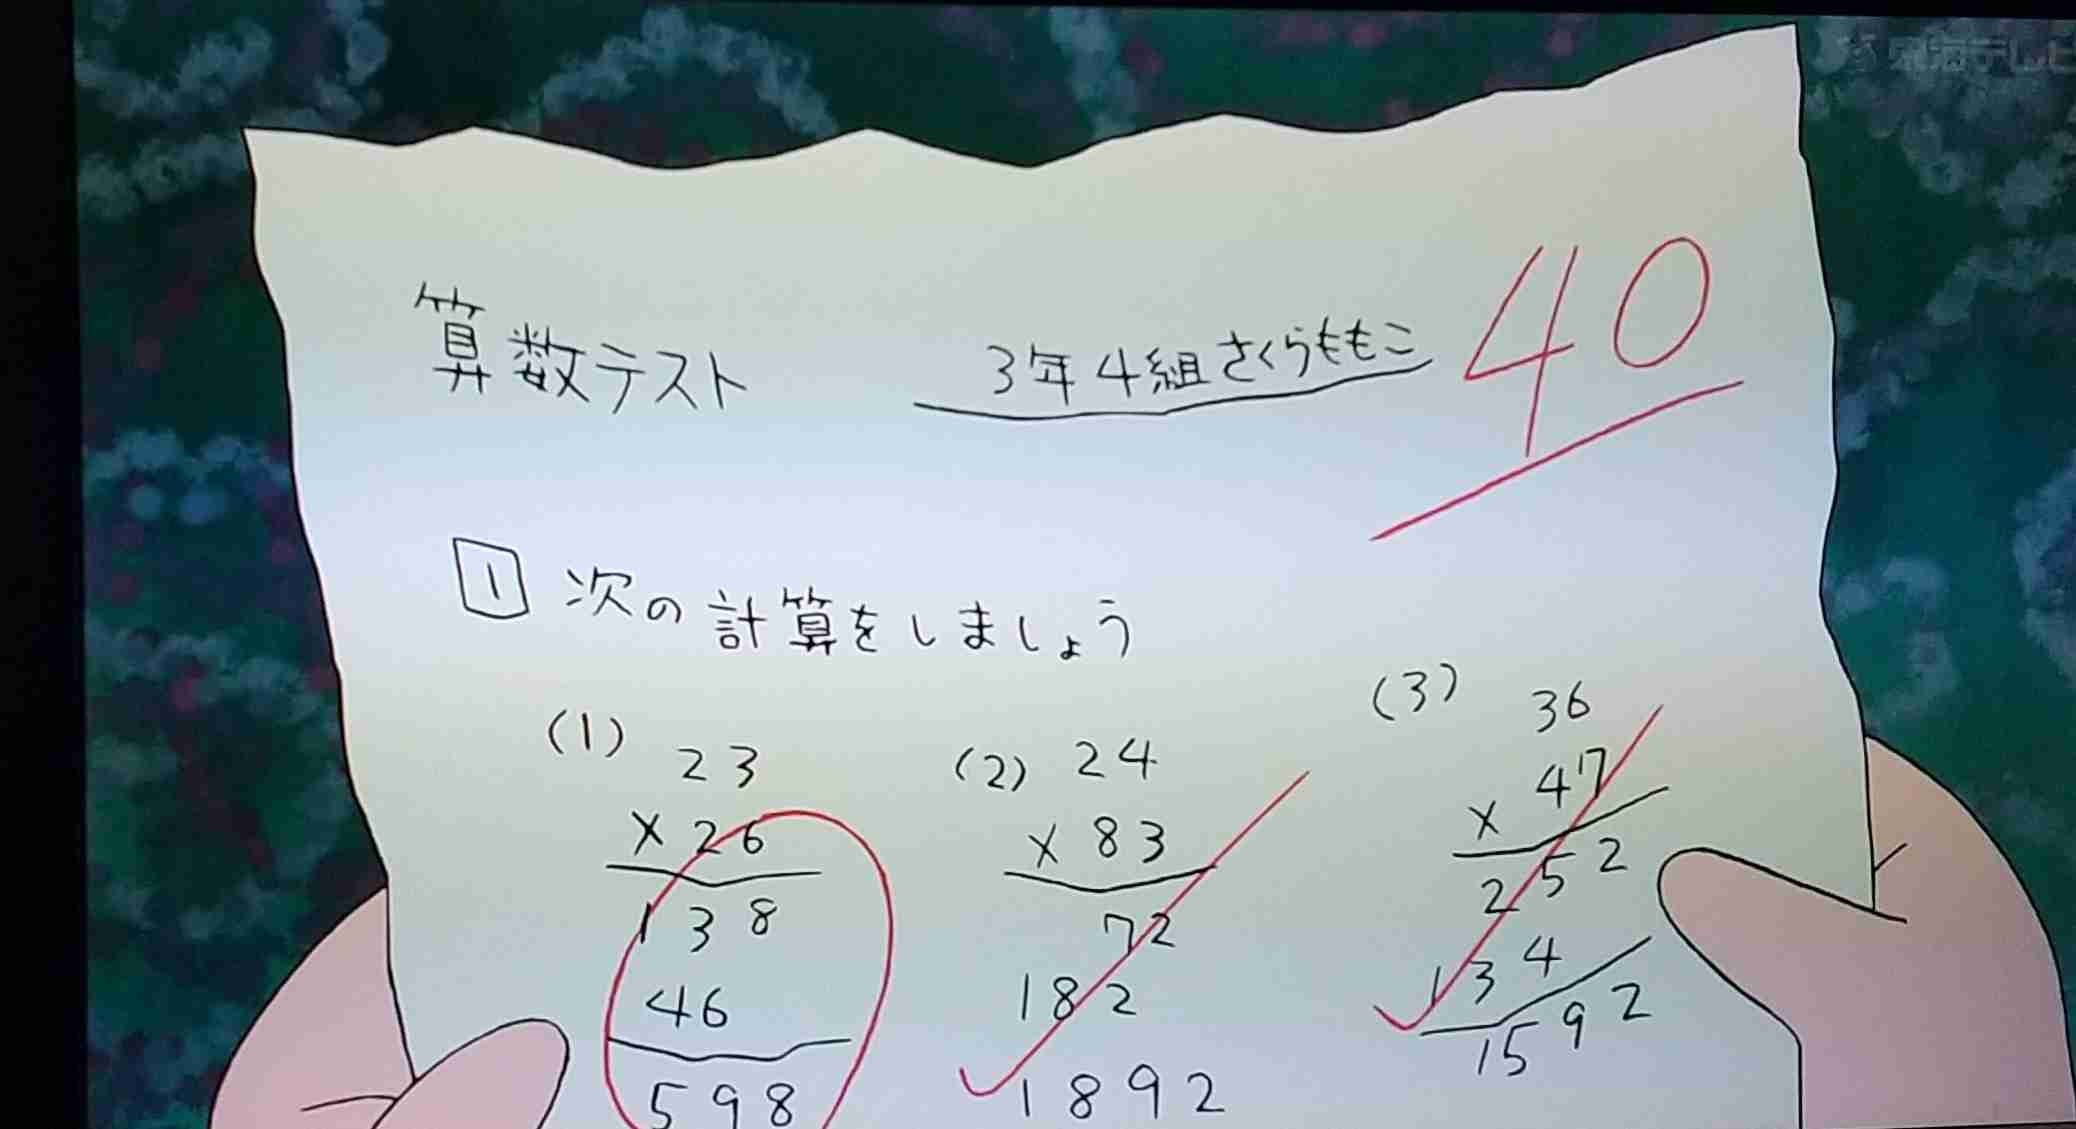 東海テレビ
40
算数テスト 3年4組さくらももこ
1 次の計算をしましょう
(1) 23
×26
138
46
598
(2) 24
×83
72
182
1892
(3) 36
×47
252
134
1592